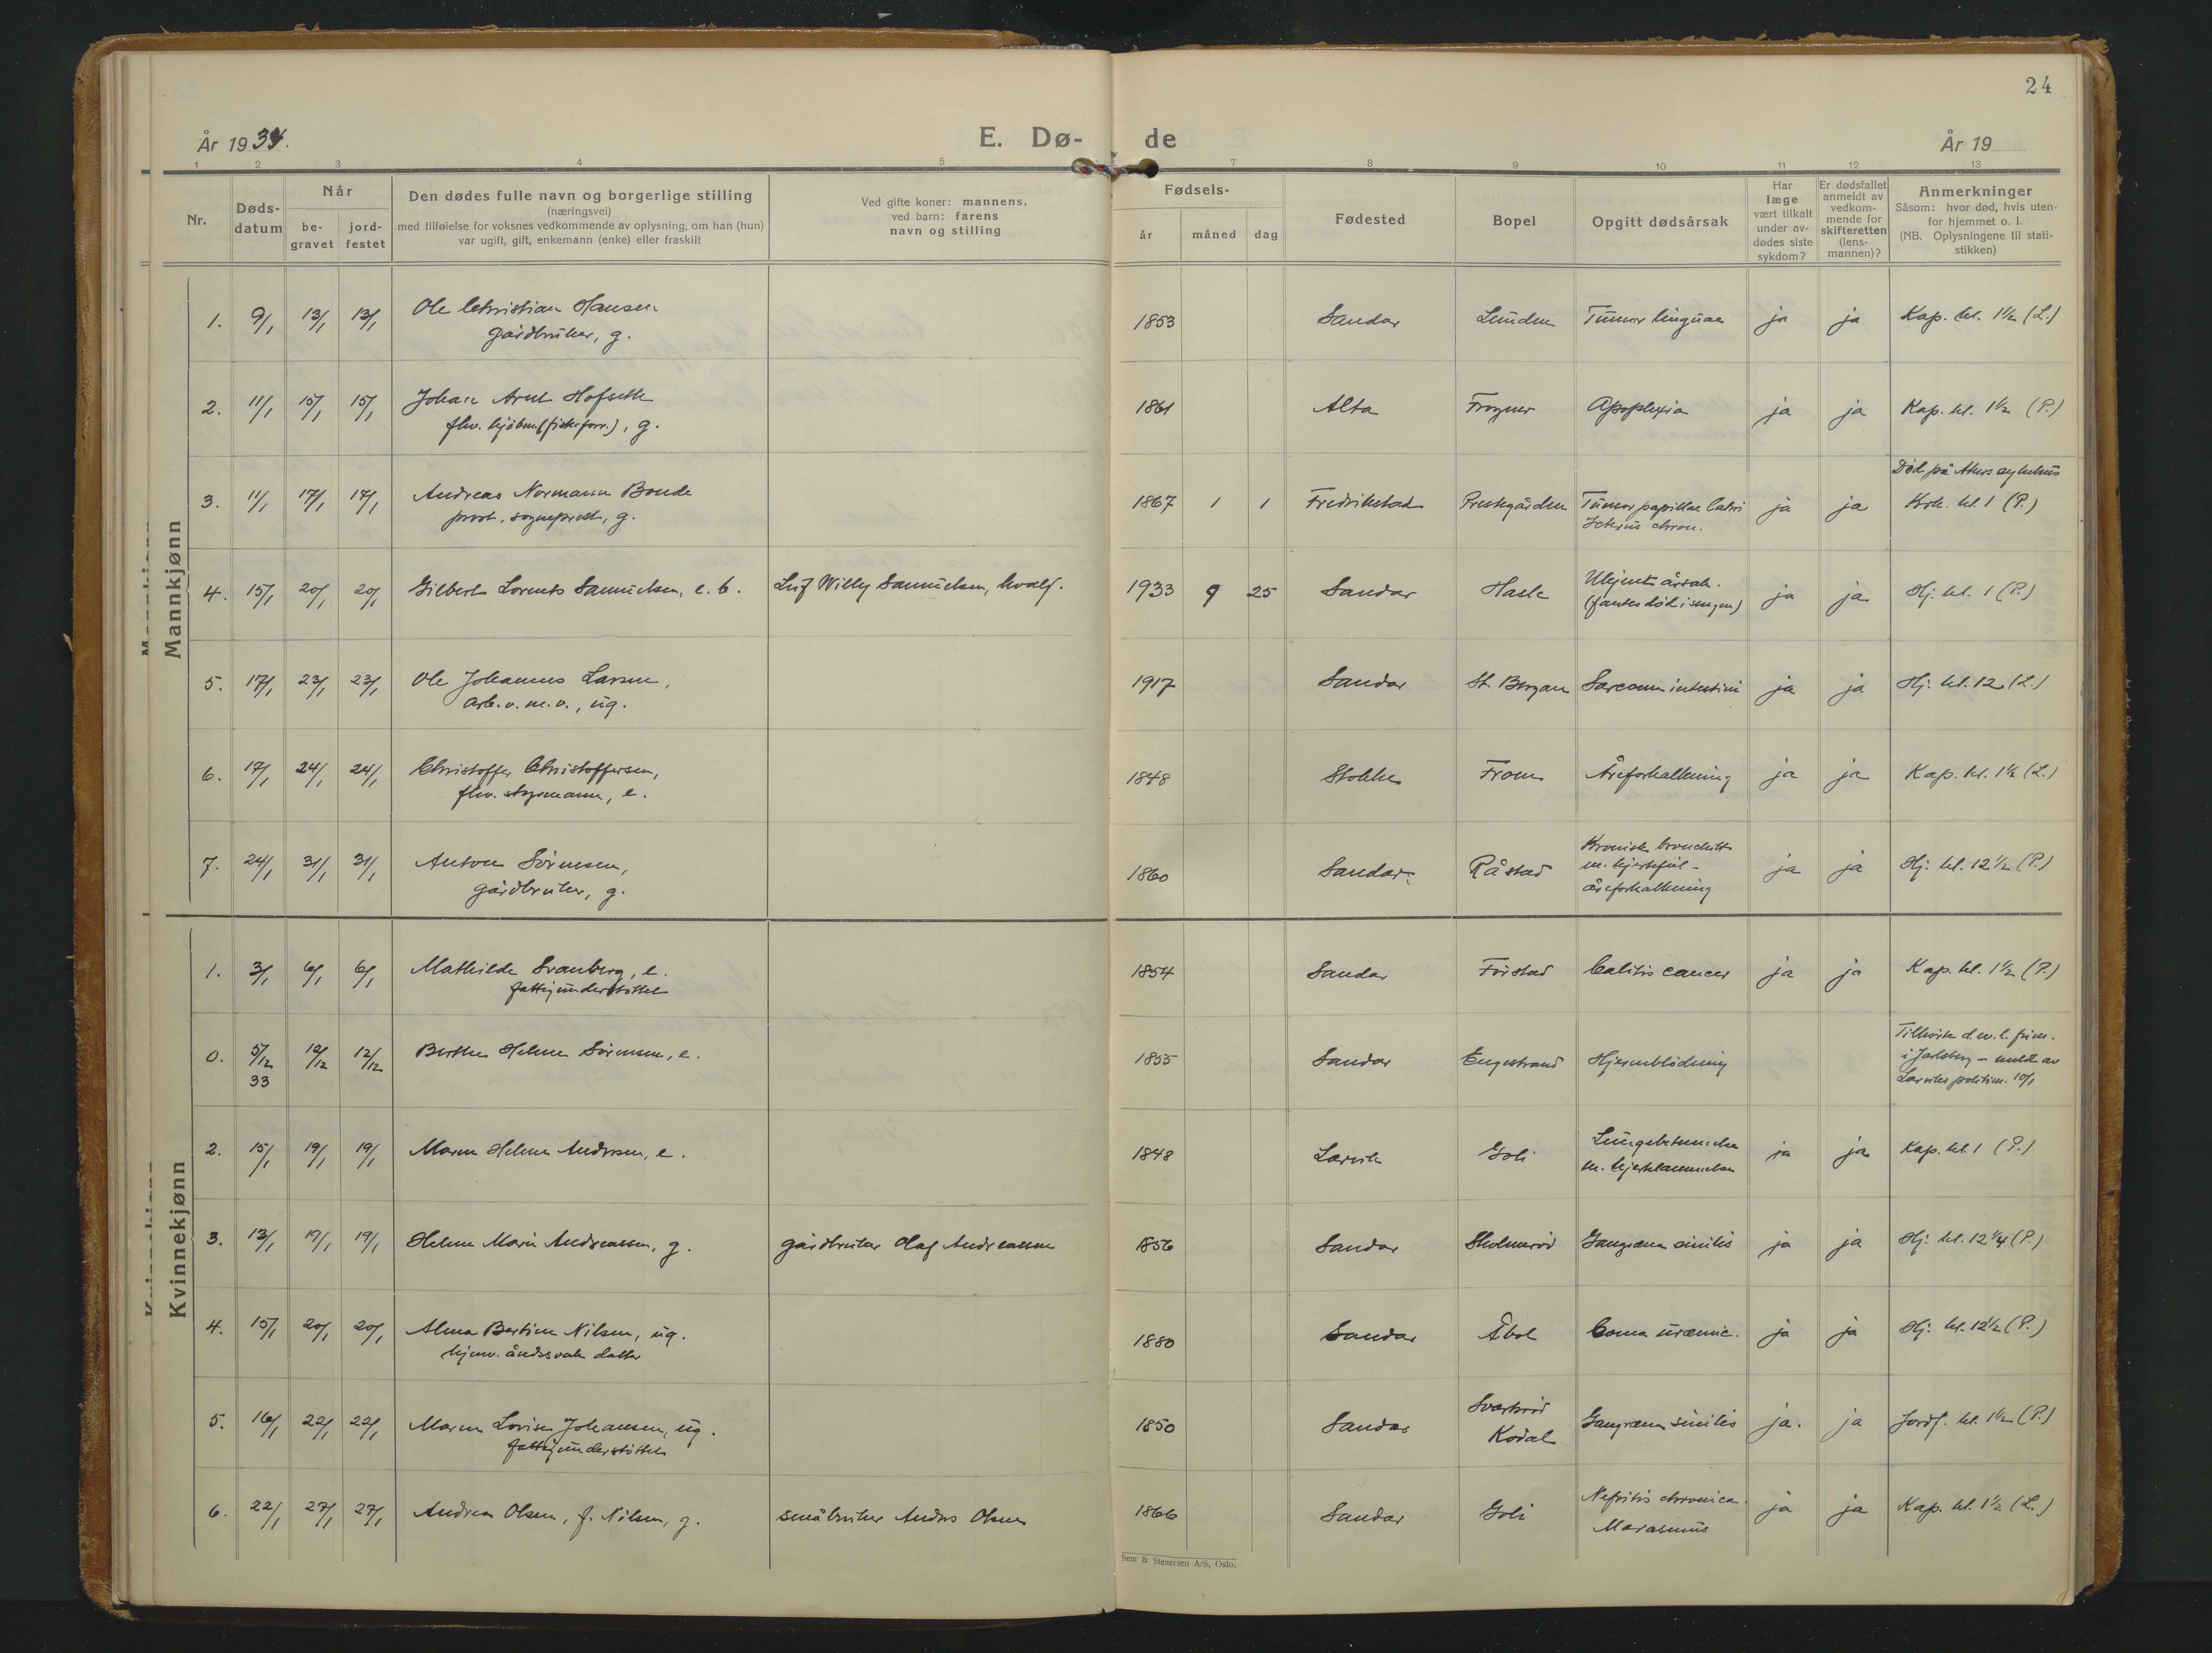 24
År 1934.
E. Dø-
de
År 19
1 2 3 4 5 7 8 9 10 11 12 13
Nr.
Døds-
datum
Når
be-
gravet
jord-
festet
Den dødes fulle navn og borgerlige stilling
(næringsvei)
med tilføielse for voksnes vedkommende av oplysning, om han (hun)
var ugift, gift, enkemann (enke) eller fraskilt
Ved gifte koner: mannens,
ved barn: farens
navn og stilling
Fødsels-
år måned dag
Fødested
Bopel
Opgitt dødsårsak
Har
læge
vært tilkalt
under av-
dødes siste
sykdom?
Er dødsfallet
anmeldt av
vedkom-
mende for
skifteretten
(lens-
mannen)?
Anmerkninger
Såsom: hvor død, hvis uten-
for hjemmet o. l.
(NB. Oplysningene til stati-
stikken)
Mannkjønn
1. 9/1 13/1 13/1 Ole Christian Hansen 1853 Sandar Lunden Tumor linguae ja ja Kap. kl. 1½ (L.)
gårdbruker, g.
2. 11/1 15/1 15/1 Johan Arnt Hofseth 1861 Alta Frogner Apoplexia ja ja Kap. kl. 1½ (P.)
fhv. kjøbm. (fisheforr.), g.
Død på Akers sykehus
3. 11/1 17/1 17/1 Andreas Normann Bonde 1867 1 1 Fredrikstad Prestegården Tumor papillae Vateri ja ja Krk. kl. 1 (P.)
prost, sogneprest, g. Icterus chron.
4. 15/1 20/1 20/1 Gilbert Lorents Samuelsen, e. b. Leif Willy Samuelsen, hvalf. 1933 9 25 Sandar Hasle Ukjent årsak. ja ja Hj. kl. 1 (P.)
(fantes død i sengen)
5. 17/1 23/1 23/1 Ole Johannes Larsen, 1917 Sandar St. Bergan Sarcom intestini ja ja Hj. kl. 12 (L.)
arb. o. m. v., ug.
6. 17/1 24/1 24/1 Christoffer Christoffersen, 1848 Stokke From Åreforkalkning ja ja Kap. kl. 1½ (L.)
fhv. , e.
7. 24/1 31/1 31/1 Anton Sørensen, 1860 Sandar Råstad Kronisk bronchitt ja ja Hj. kl. 12½ (P.)
gårdbruker, g. m. hjertefeil -
åreforkalkning
Kvinnekjønn
1. 3/1 6/1 6/1 Mathilde Svanberg, e. 1854 Sandar Førstad cancer ja ja Kap. kl. 1½ (P.)
fattigunderstøttet
0. 5/12 33 12/12 12/12 Berthe Helene Sørensen, e. 1855 Sandar Engestrand Hjerneblødning
i Jarlsberg - meldt av
Larviks politim. 10/1
2. 15/1 19/1 19/1 Maren Helene Andersen, e. 1848 Larvik Goli Lungebetennelse ja ja Kap. kl. 1 (P.)
m. hjertelammelse
3. 13/1 19/1 19/1 Helene Marie Andreassen, g. gårdbruker Olaf Andreassen 1856 Sandar Skolmerød Gangræna sinilis ja ja Hj. kl. 12¼ (P.)
4. 15/1 20/1 20/1 Alma Bertine Nilsen, ug. 1880 Sandar Åbol Coma uræmic. ja ja Hj. kl. 12½ (P.)
hjemv. åndssvak datter
5. 16/1 22/1 22/1 Maren Lovise Johansen, ug. 1850 Sandar Svartsrød Gangræna sinilis ja. ja Jordf. kl. 1½ (P.)
fattigunderstøttet Kodal
6. 22/1 27/1 27/1 Andrea Olsen, f. Nilsen, g. småbruker Anders Olsen 1866 Sandar Goli Nefritis chronica. ja ja Kap. kl. 1½ (L.)
Marasmus
Sem & Stenersen A/S, Oslo.